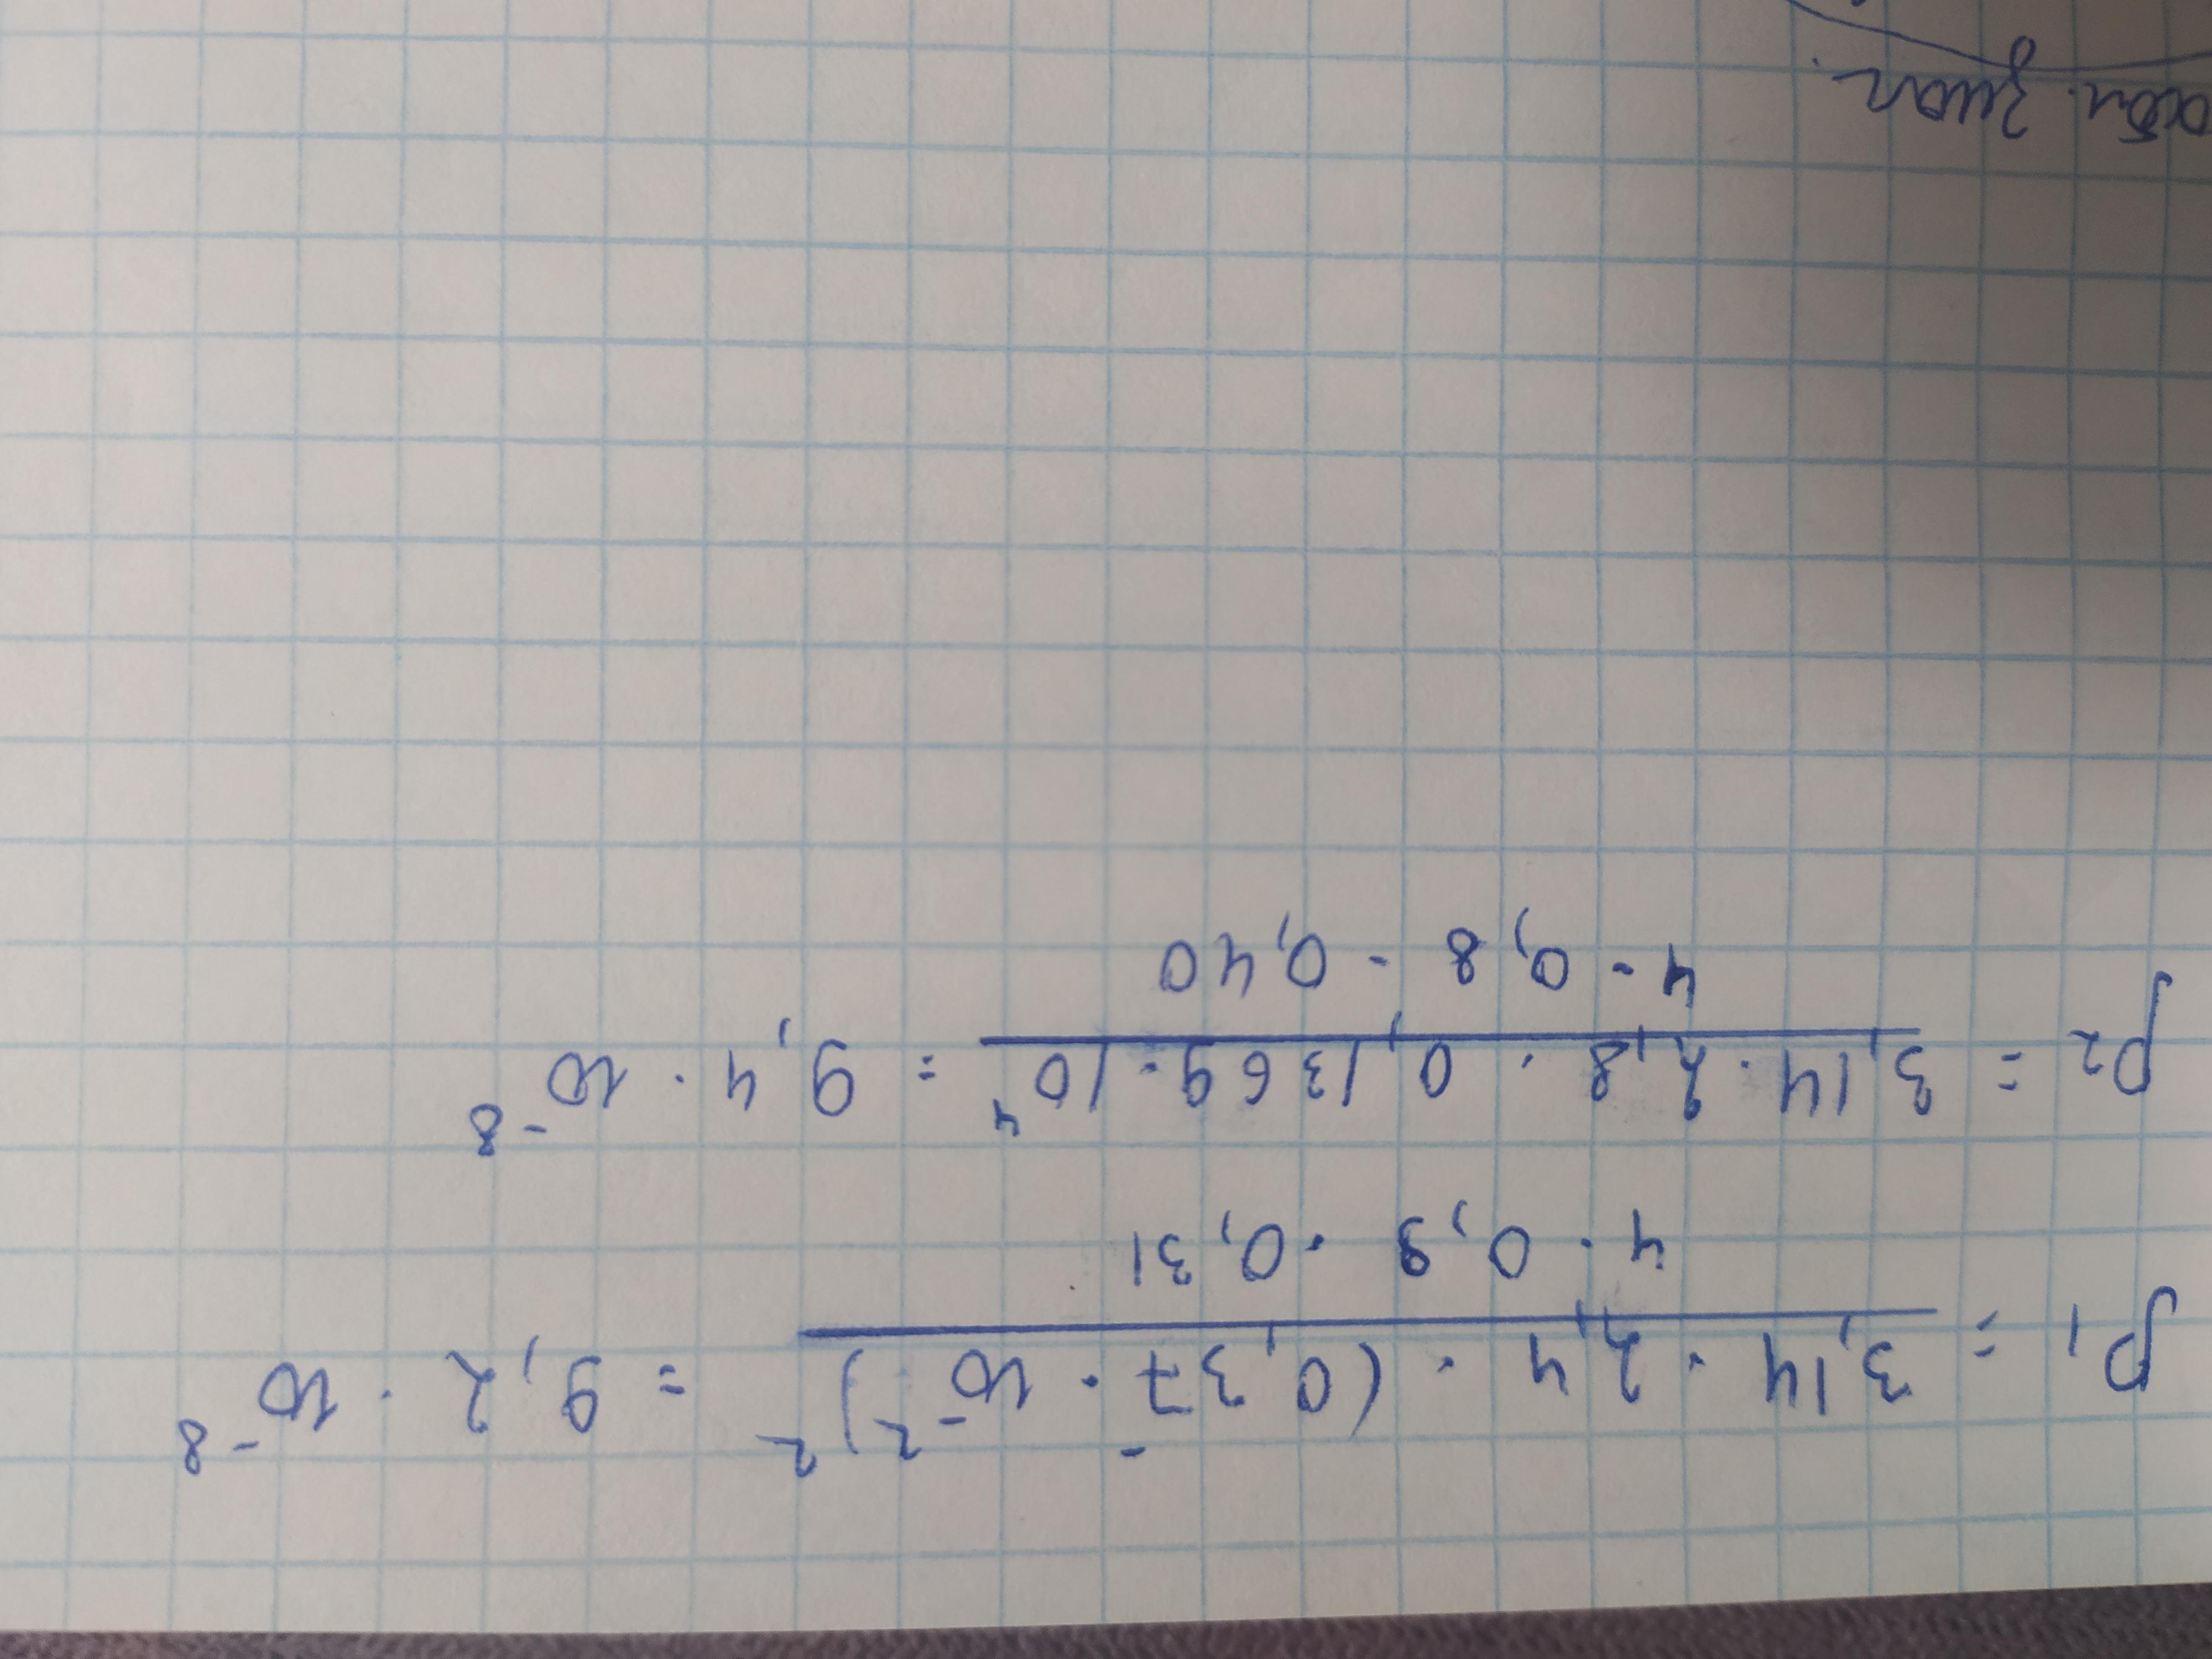 ρ₁ = 3,14 · 2,4 · (0,37 · 10⁻²)² / 4 · 0,9 · 0,31 = 9,2 · 10⁻⁸
ρ₂ = 3,14 · 2,8 · 0,1369 · 10⁴ / 4 · 0,8 · 0,40 = 9,4 · 10⁻⁸